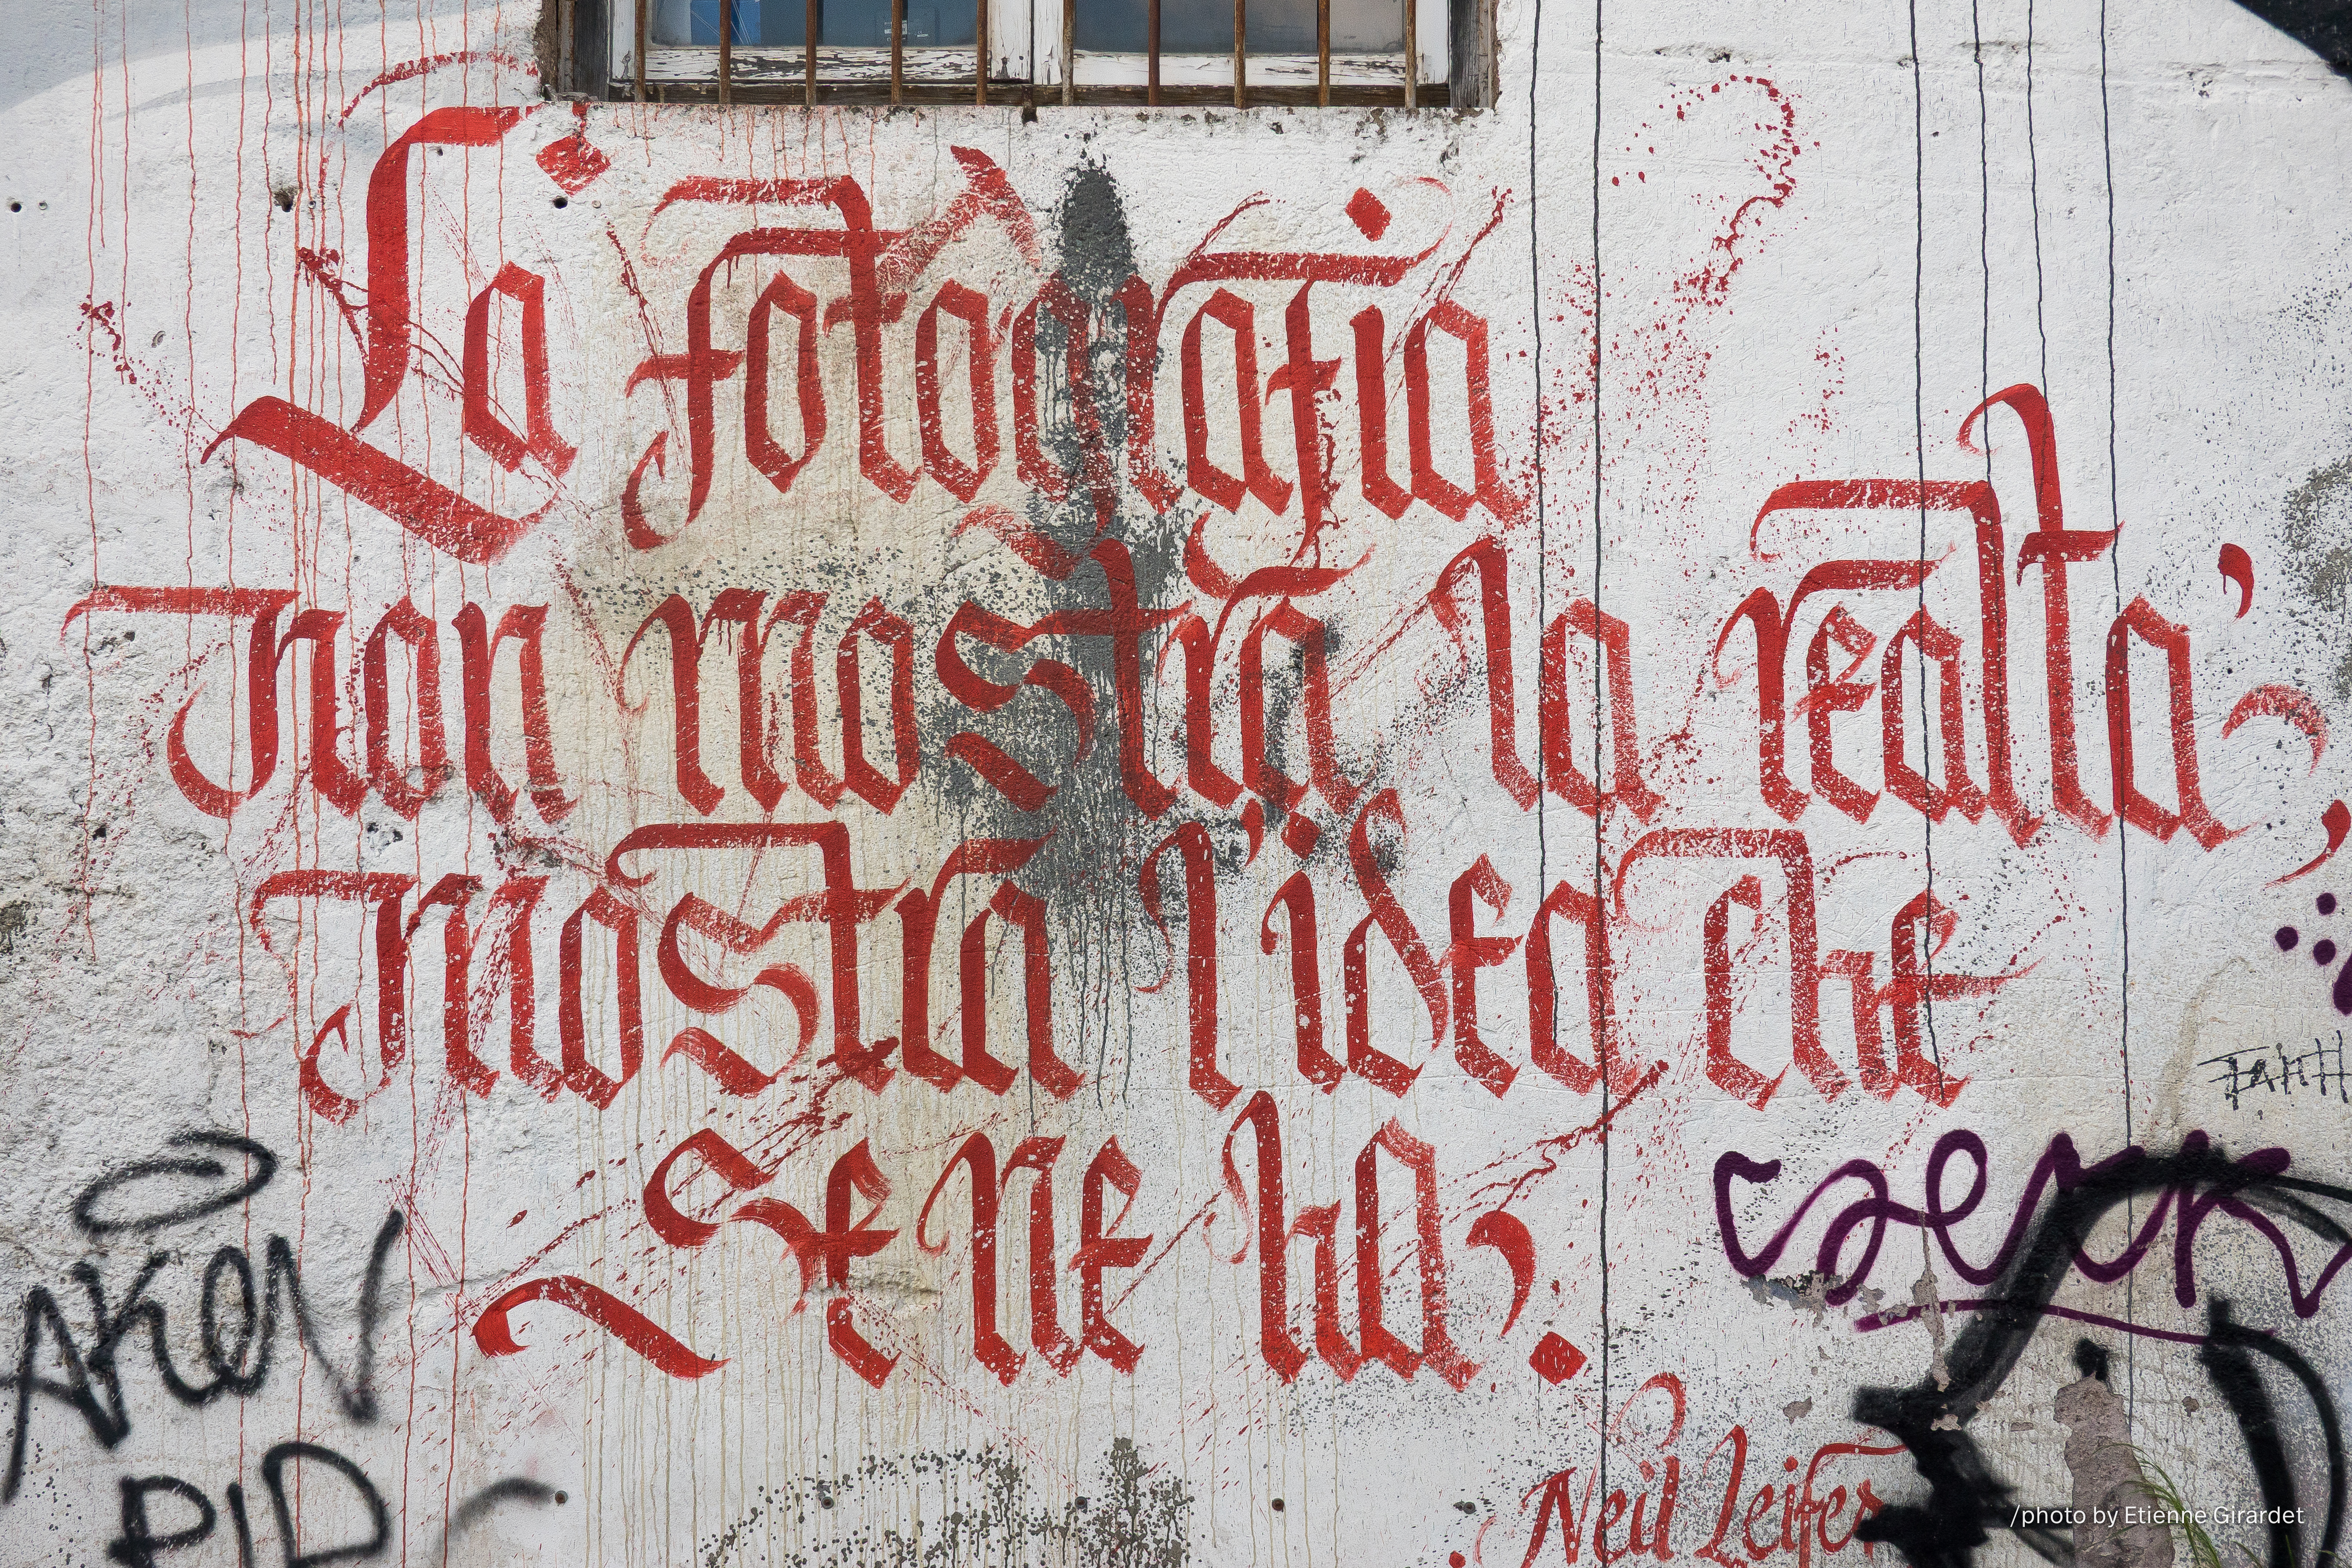 La fotografia
non mostra la realta',
mostra l'idea che
se ne ha.
Neil Leifer
AKEN
PID
/photo by Etienne Girardet